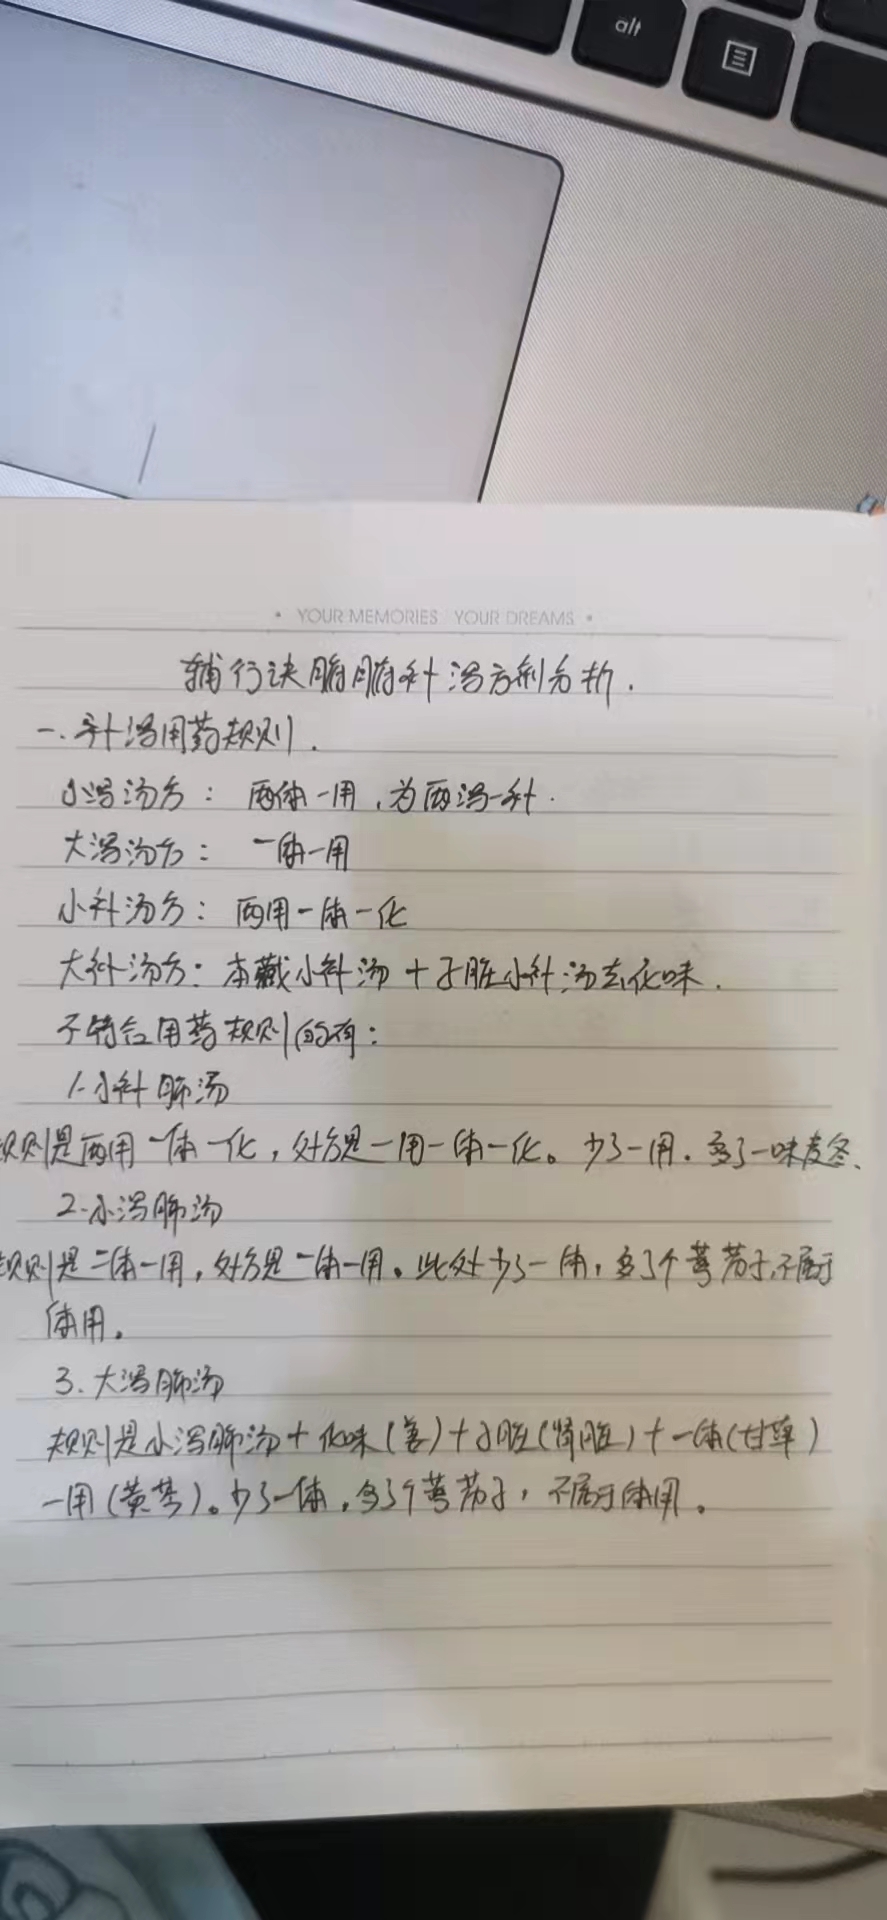 alt
YOUR MEMORIES YOUR DREAMS
辅行诀脏腑补泻方剂分析.
一.补泻用药规则.
小泻汤方：两体一用，为两泻一补.
大泻汤方：一体一用
小补汤方：两用一体一化
大补汤方：本藏小补汤+子脏小补汤去化味.
不符合用药规则的有：
1.小补肺汤
规则是两用一体一化，处方是一用一体一化。少了一用.多了一味麦冬、
2.小泻肺汤
规则是二体一用，处方是一体一用。此处少了一体，多了个葶苈子,不属于
体用。
3.大泻肺汤
规则是小泻肺汤+化味(姜)+子脏(肾脏)+一体(甘草)
一用(黄芩)。少了一体，多了个葶苈子，不属于体用。